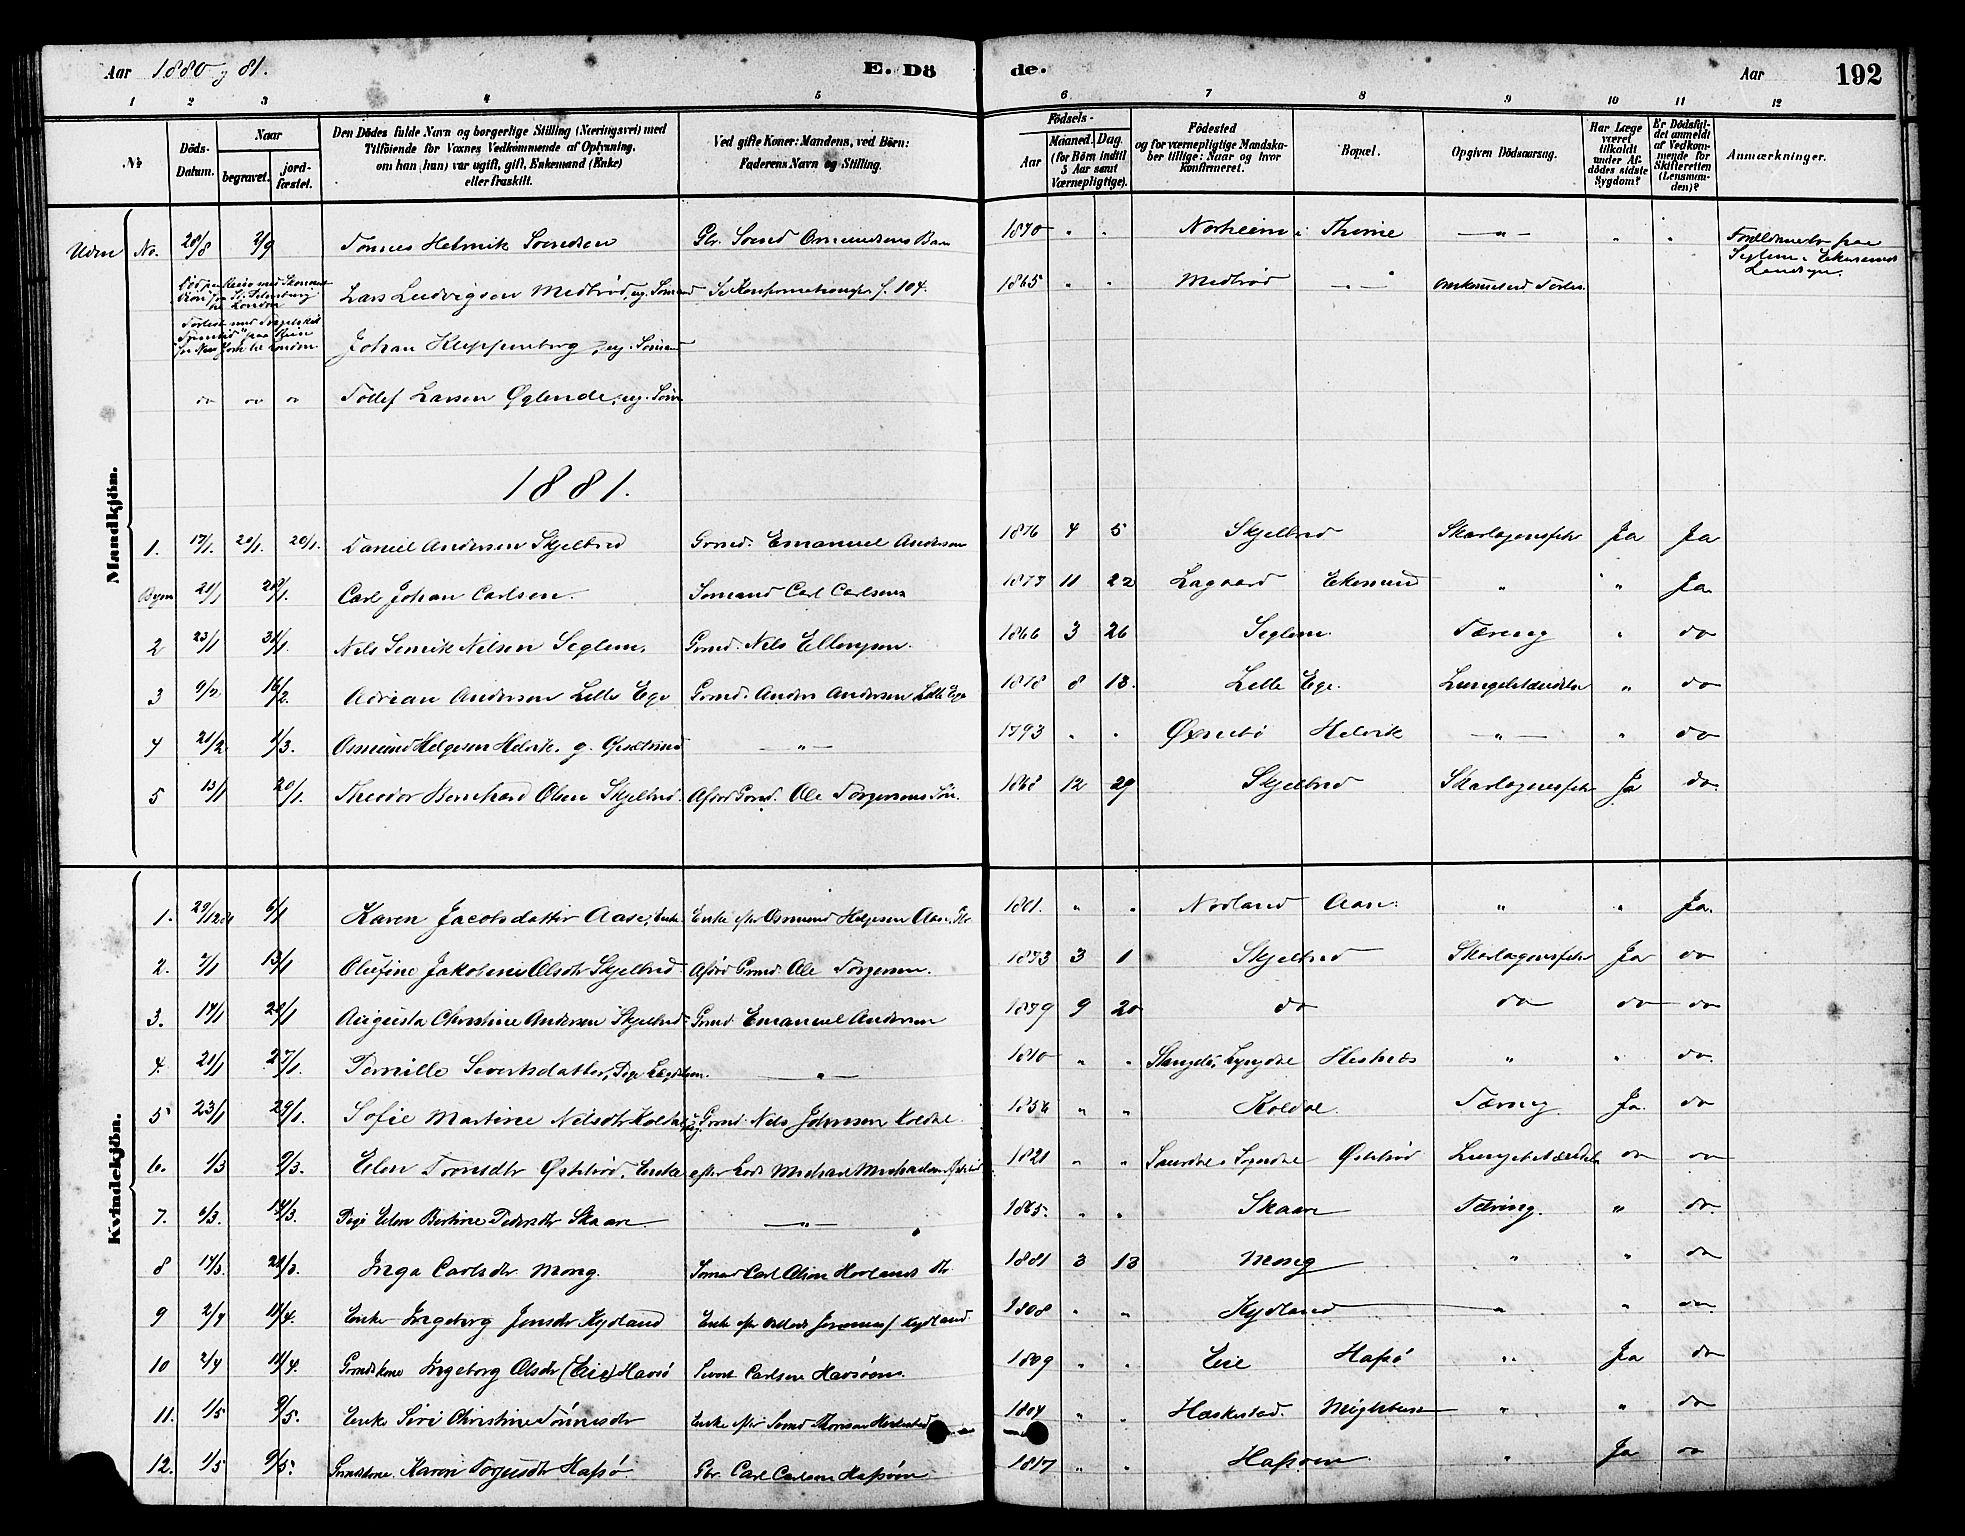 Aar 1880 81.
E. Dö
de.
Aar
192
1 2 3 4 5 6 7 8 9 10 11 12
No
Döds-Datum.
Naar
begravet.
jordfæstet.
Den Dödes fulde Navn og borgerlige Stilling (Næringsvei) med
Tilföiende for Voxnes Vedkommende af Oplysning,
om han (hun) var ugift, gift, Enkemand (Enke)
eller fraskilt.
Ved gifte Koner: Mandens, ved Börn:
Faderens Navn og Stilling.
Födsels-
Aar
Maaned. Dag.
(for Börn indtil
5 Aar samt
Værnepligtige).
Födested
og for værnepligtige Mandskaber tillige: Naar og hvor
Konfirmeret.
Bopæl.
Opgiven Dödsaarsag.
Har Læge
været
tilkaldt
under Afdödes sidste
Sygdom?
Er Dödsfaldet anmeldt
af Vedkommende for
Skifteretten
(Lensmanden)?
Anmærkninger.
Mandkjön.
No. 28/8 2/9 Tønnes Helmik Svendsen 1870 " " Norheim i Thime
Lars Ludvigsen Medbrød, ug. Sømand 1865 " " Medbrød
Johan Kleppenborg, ug. Sømand
do do do Tollef Larsen Øglende, ug. Søm
1881.
1. 17/1 20/1. 20/1. Daniel Andersen Skjelbred Grmd. Emanuel Andersen 1876 4 5 Skjelbred Skarlagensfeber Ja Ja
21/1 Carl Johan Carlsen. Sømand Carl Carlsen 1877 11 22 Lagaard Ekersund " " Ja.
2 23/1 31/1. Nils Senrik Nilsen Seglem. Grmd. Nils Ellingsen. 1866 3 26 Seglem. Tæring " do
3 9/2 16/2. Adrian Andersen Lille Ege Grmd. Anders Andersen Lille Ege 1878 8 13. Lille Ege. Lungebetændelse " do
4 21/2 1/3. Osmund Helgesen Helvik. g. " 1793 " " Øxnebø Helvik " " do
5 13/1 20/1. Theodor Bernhard Olsen Skjelbred. Afdød Grmd. Ole Torgersens Søn. 1868 12 29 Skjelbred Skarlagensfeber Ja do.
Kvindekjön.
1. 29/12 80 6/1 Karen Jacobsdatter Aase, Enke Enke efter Osmund Helgesen Aase 1801. " " Norland Aase " " Ja.
2. 7/1 13/1 Olufine Jakobine Olsdtr Skjelbred Afdød Grmd. Ole Torgersen. 1873 3 1 Skjelbred Skarlagensfeber Ja do
3. 17/1 20/1 Augusta Christine Andersen Skjelbred Grmd. Emanuel Andersen 1879 9 20 do do do do
4. 21/1 27/1. Pernille Sivertsdatter, Pige " 1810 " " Hestnes " " do.
5 23/1 29/1. Sofie Martine Nilsdtr Koldal Grmd. Nils Johnsen Koldal. 1856 " " Koldal. Tæring Ja. do
6. 1/3 9/3. Elen Tronsdtr Østebrød, Enke efter Lods Michael Michaelsen Østebrød 1821 " " Sogndal Østebrød Lungebetændelse do do
7. 6/3 14/3. Pige Elen Bertine Pedersdtr Skaare " 1865. " " Skaare Tæring. " do.
8 17/3. Inga Carlsdtr Mong. Sømand Carl Olsen Hovlands dtr 1881 3 13 Mong " " do
9 2/4 11/4. Enke Ingeborg Jensdtr Kydland Enke efter Kydland 1808 " " Kydland " " do
10 2/4 11/4. Grmdskone Ingeborg Olsdtr (Eie) Havsø Sivert Carlsen Havsøen 1809 " " Eie Hafsø " Ja do
11. 1/5 9/5. Enke Siri Christine Tønnesdtr Enke efter Svend Thorsen 1804 " " Heskestad. " " do
12. 1/5 9/5. Grmdskone. Karen Hafsø Gbr. Carl Carlsen Hafsøen 1817 " " Hafsøen. " Ja do